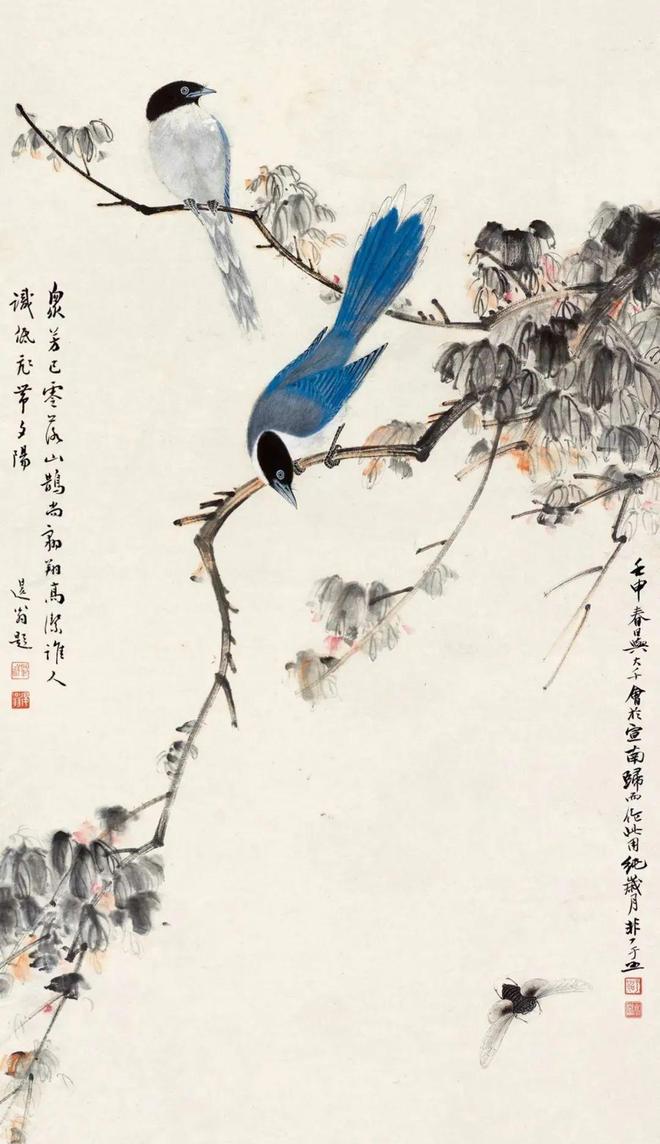 壬申春日與大千會於宣南歸而作此用紀歲月非厂于
眾芳已零落山鵲尚翱翔高潔誰人
識低飛帶夕陽
遐翁題